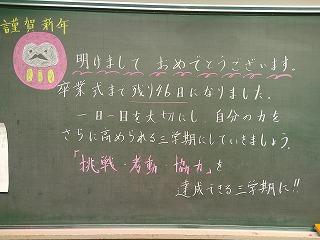 謹賀新年
明けまして おめでとうございます。
卒業式まで残り46日になりました。
一日一日を大切にし、自分の力を
さらに高められる三学期にしていきましょう。
「挑戦・考動・協力」を
達成できる三学期に!!